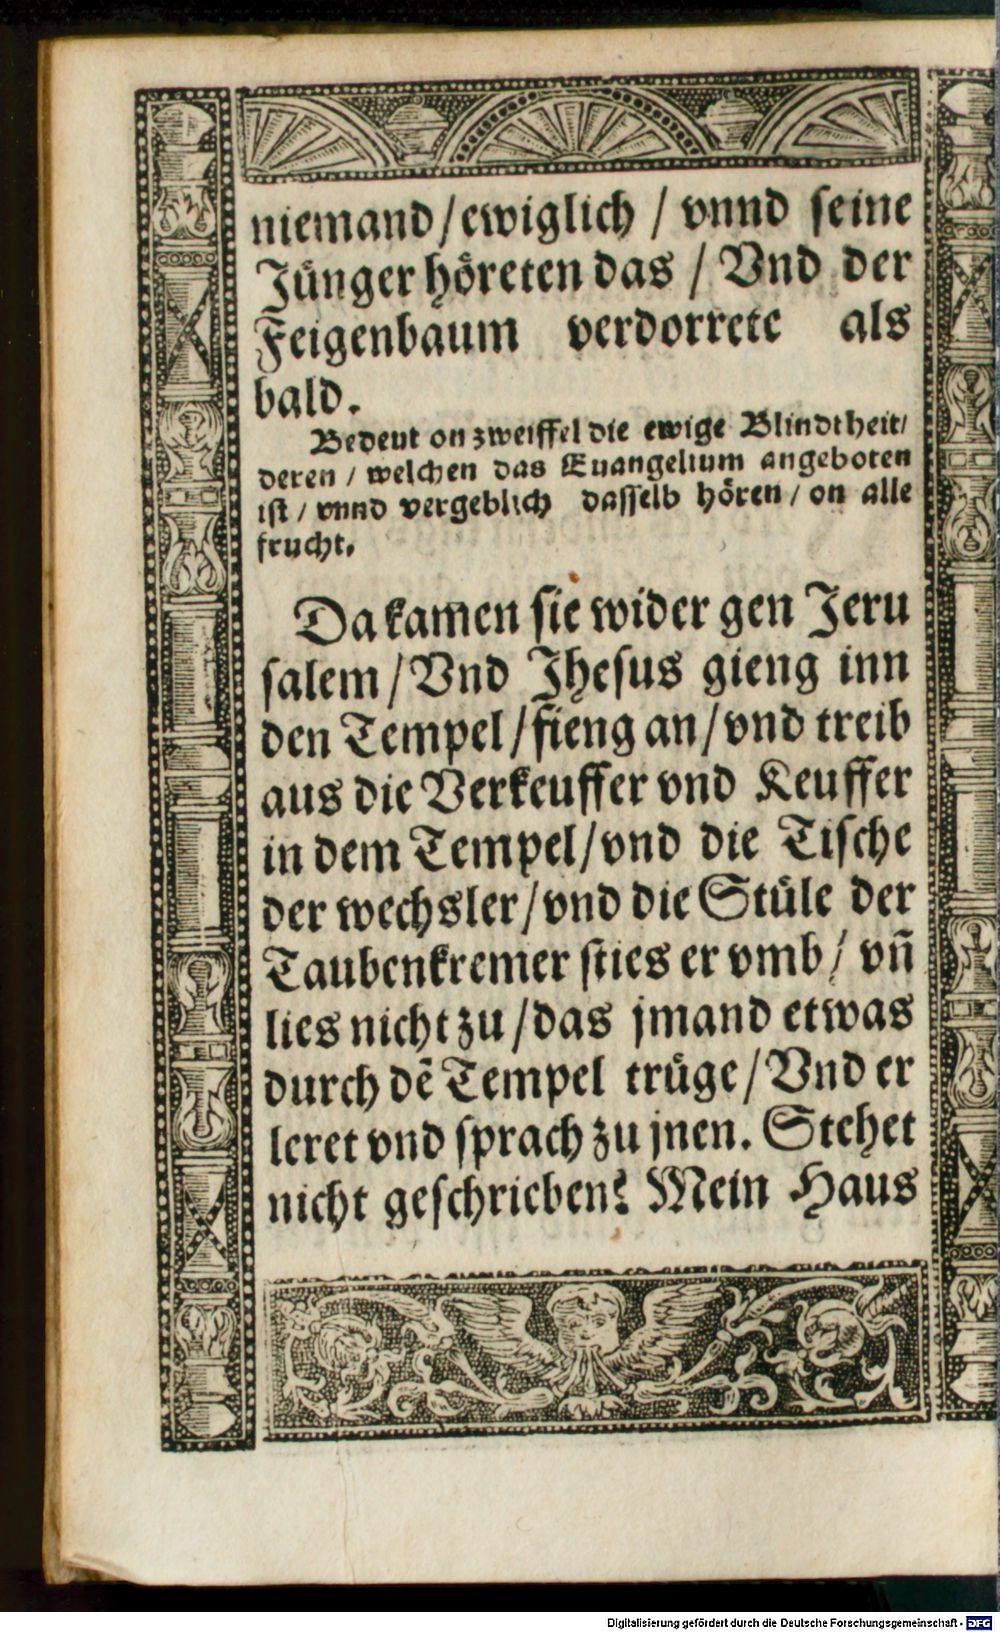 niemand/ewiglich / vnnd seine
Jünger höreten das / Vnd der
Feigenbaum verdorrete als
bald.
Bedeut on zweiffel die ewige Blindtheit/
deren / welchen das Euangelium angeboten
ist / vnnd vergeblich dasselb hören / on alle
frucht.
Da kamen sie wider gen Jeru
salem/Vnd Jhesus gieng inn
den Tempel/fieng an/vnd treib
aus die Verkeuffer vnd Keuffer
in dem Tempel/vnd die Tische
der wechsler/vnd die Stüle der
Taubenkremer sties er vmb/ vñ
lies nicht zu/das jmand etwas
durch dē Tempel trüge/Vnd er
leret vnd sprach zu jnen. Stehet
nicht geschrieben? Mein Haus
Digitalisierung gefördert durch die Deutsche Forschungsgemeinschaft - DFG